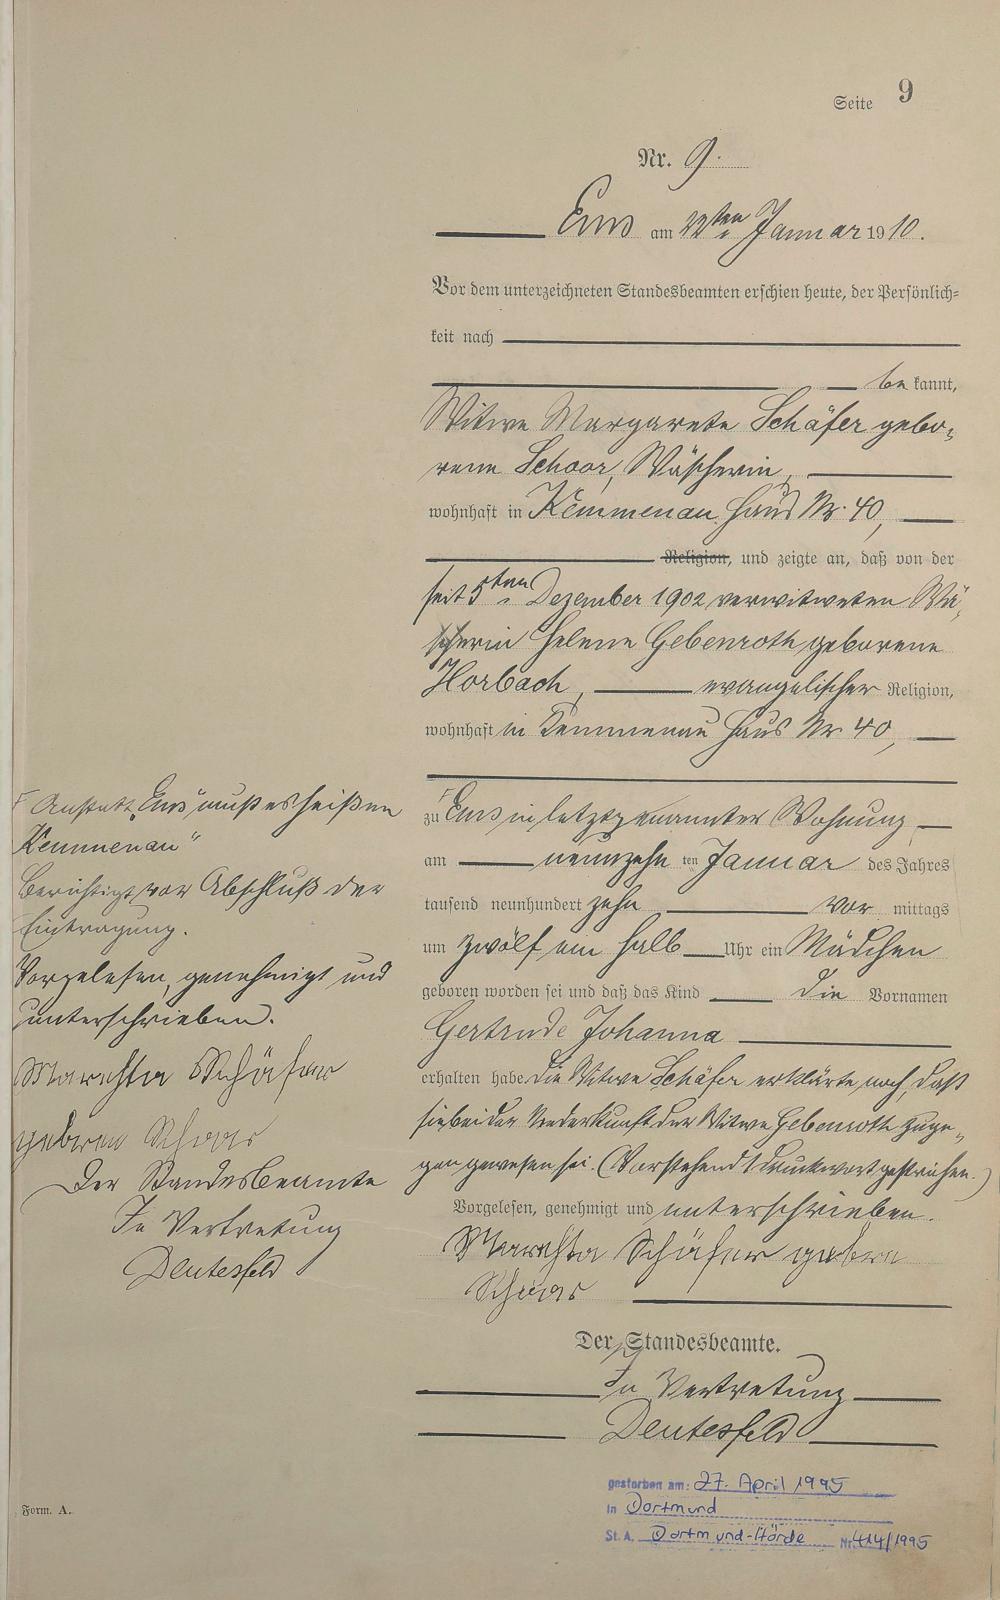 Seite 9
Nr. 9.
Ems am 22ten Januar 1910.
Vor dem unterzeichneten Standesbeamten erschien heute, der Persönlich-
keit nach
be kannt,
Witwe Margarete Schäfer gebo-
rene Schoor, Wäscherin,
wohnhaft in Kemmenau Haus Nr. 40,
Religion, und zeigte an, daß von der
seit 5ten Dezember 1902 verwitweten Wä-
scherin Helene Gebenroth geborene
Horbach, evangelischer Religion,
wohnhaft in Kemmenau Haus Nr 40,
zu Ems in letztgenannter Wohnung
am neunzehn ten Januar des Jahres
tausend neunhundert zehn vor mittags
um zwölf ein halb Uhr ein Mädchen
geboren worden sei und daß das Kind die Vornamen
Gertrude Johanna
erhalten habe. Die Witwe Schäfer erklärte noch, daß
sie bei der Niederkunft der Witwe Gebenroth zuge-
gen gewesen sei. (Vorstehend 1 Druckwort gestrichen.)
Vorgelesen, genehmigt und unterschrieben.
Schäfer
Der Standesbeamte.
In Vertretung
Deutesfeld
Anstatt "Ems" muß es heißen
Kemmenau"
Berichtigt vor Abschluß der
Eintragung.
Vorgelesen, genehmigt und
unterschrieben.
Schäfer
Der Standesbeamte
In Vertretung
Deutesfeld
gestorben am: 27. April 1995
in Dortmund
St. A. Dortmund-Hörde Nr. 414/1995
Form. A.